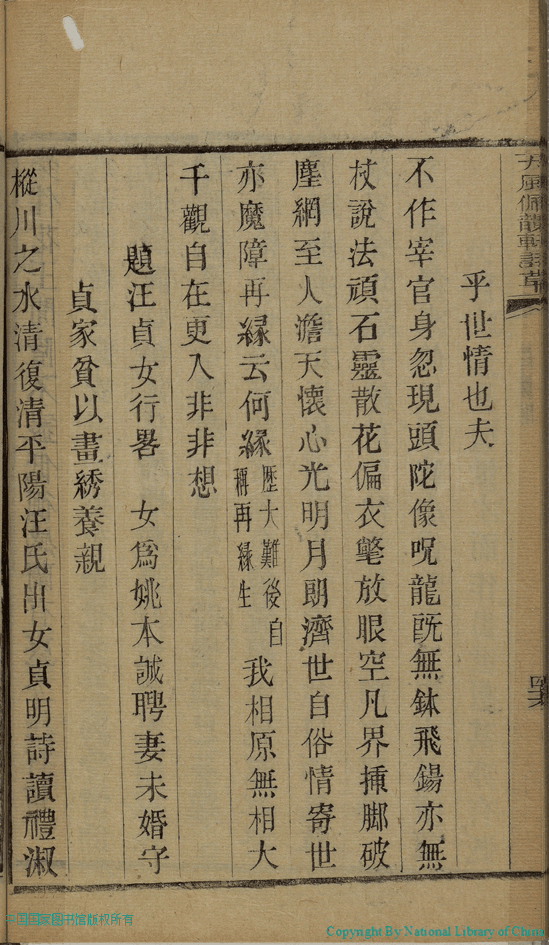 乎世情也夫
不作宰官身忽現頭陀像呪龍旣無鉢飛錫亦無
杖說法頑石靈散花偏衣氅放眼空凡界揷脚破
塵網至人澹天懷心光明月朗濟世自俗情寄世
亦魔障再緣云何緣歷大難後自稱再緣生我相原無相大
千觀自在更入非非想
題汪貞女行畧　女爲姚本誠聘妻未婚守
貞家貧以畫綉養親
樅川之水清復清平陽汪氏出女貞明詩讀禮淑
中国国家图书馆版权所有
Copyright By National Library of China